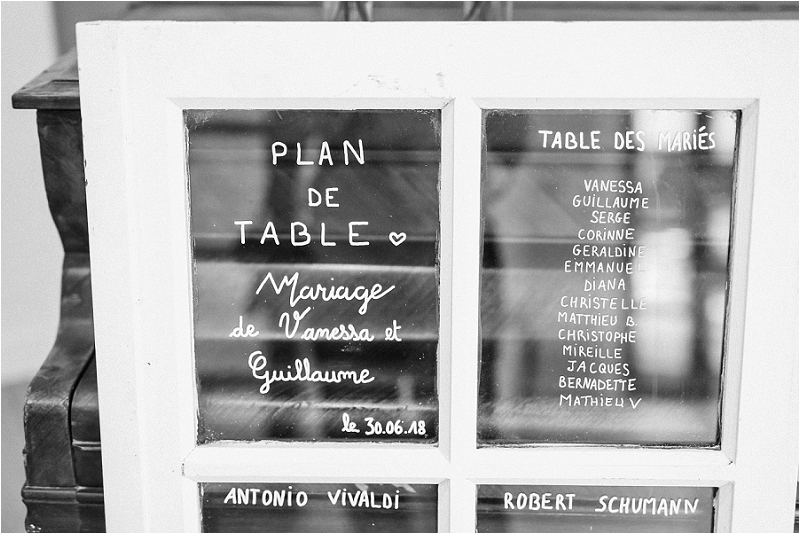 PLAN
DE
TABLE
Mariage
de Vanessa et
Guillaume
le 30.06.18
TABLE DES MARIÉS
VANESSA
GUILLAUME
SERGE
CORINNE
GERALDINE
EMMANUEL
DIANA
CHRISTELLE
MATTHIEU B.
CHRISTOPHE
MIREILLE
JACQUES
BERNADETTE
MATHIEU V
ANTONIO VIVALDI
ROBERT SCHUMANN